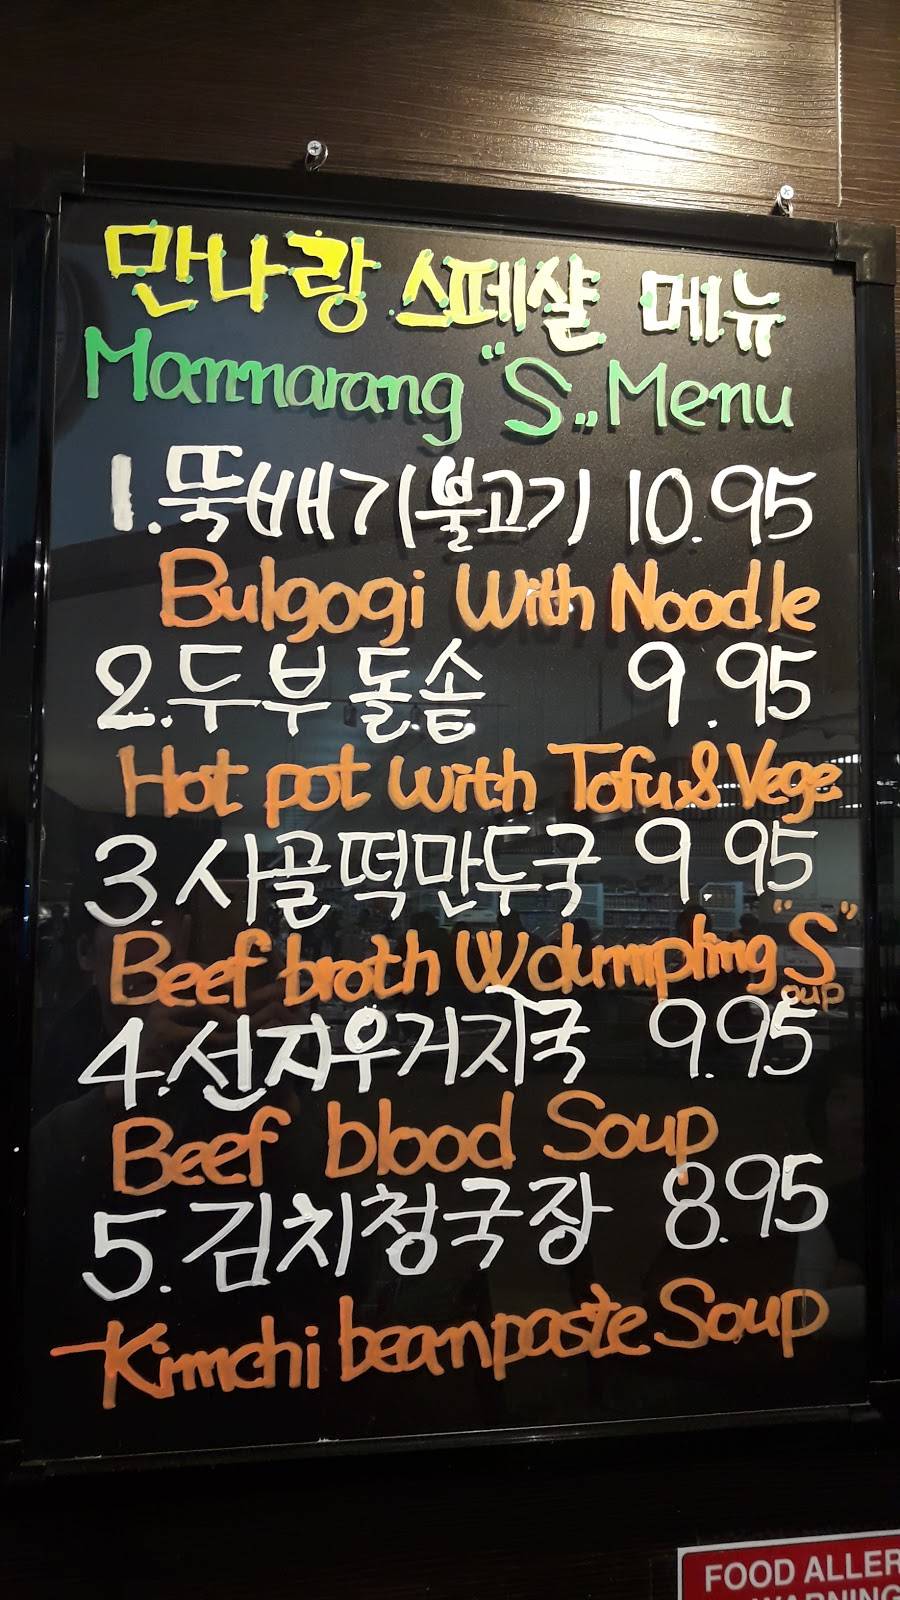 만나랑 스페샬 메뉴
Mannarang "S" Menu
1. 뚝배기불고기 10.95
Bulgogi With Noodle
2. 두부 돌솥 9.95
Hot pot with Tofu & Vege.
3. 사골떡만두국 9.95
Beef broth W dumpling "S"oup
4. 선지우거지국 9.95
Beef blood Soup
5. 김치청국장 8.95
Kimchi beanpaste Soup
FOOD ALLER
WARNING